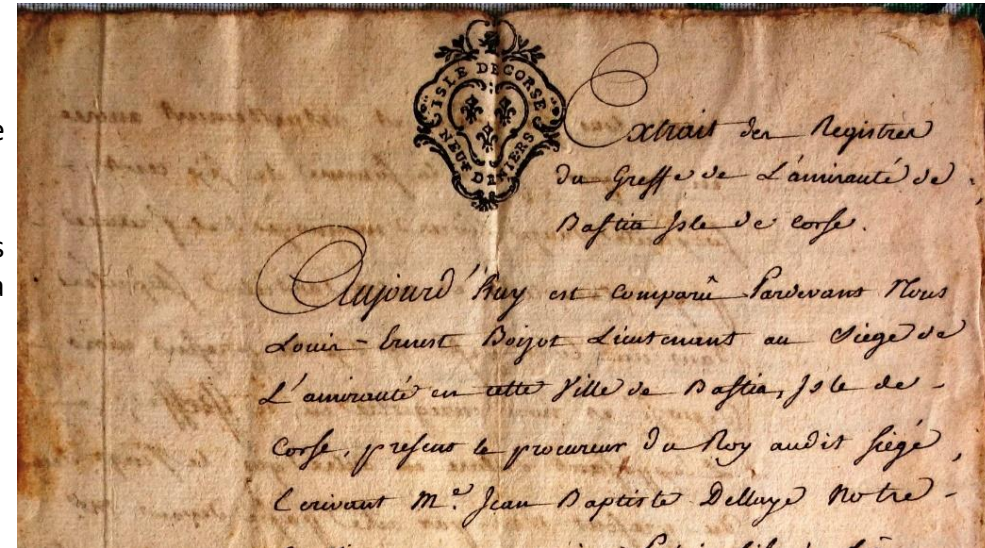 ISLE DE CORSE
NEUF DENIERS
Extrait des Registres
du Greffe de L'amirauté de
Bastia Isle de Corse.
Aujourd'huy est Comparû Pardevant Nous
Louis-Ernest Boizot Lieutenant au Siége de
L'amirauté en cette Ville de Bastia, Isle de
Corse, present le procureur du Roy audit siégé,
Ecrivant M.e Jean Baptiste Dellaye Notre